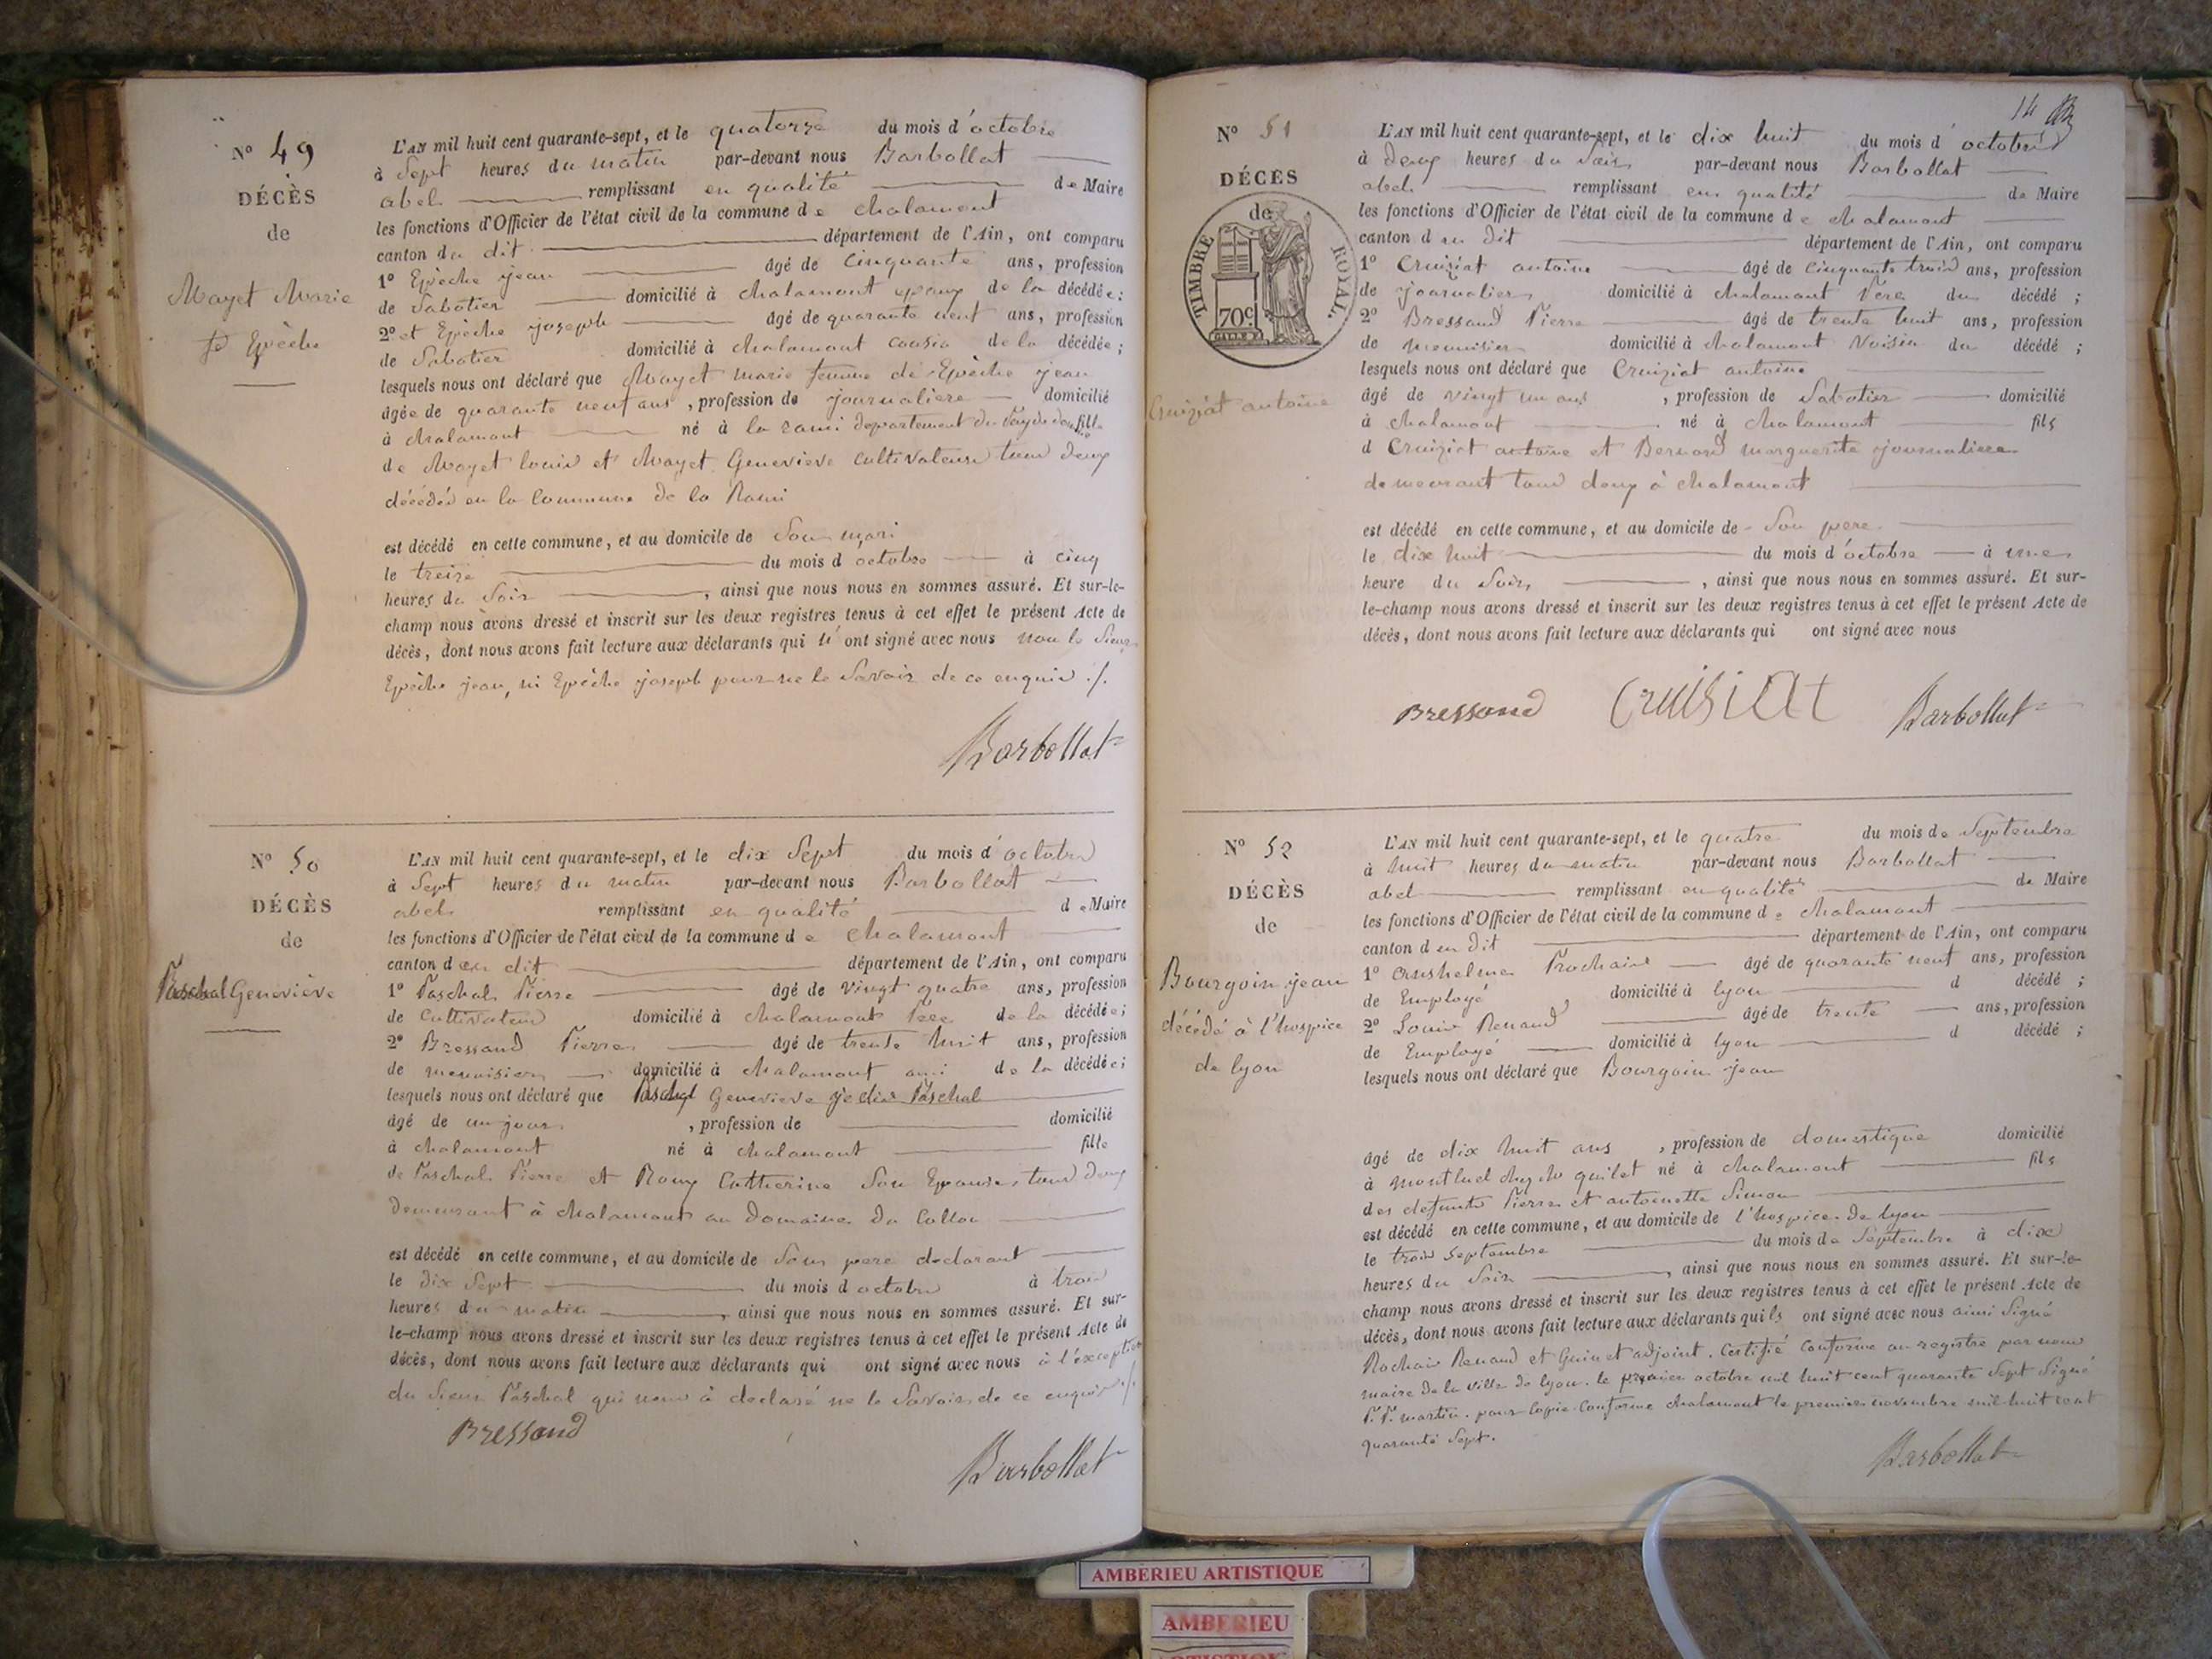 N° 49
DÉCÈS
de
Mayet Marie
fe Epèche
L'AN mil huit cent quarante-sept, et le quatorze du mois d'octobre
à Sept heures du matin par-devant nous Barbollat
abel remplissant en qualité de Maire
les fonctions d'Officier de l'état civil de la commune de chalamont
canton du dit département de l'Ain, ont comparu
1° Epèche jean âgé de cinquante ans, profession
de Sabotier domicilié à chalamont epoux de la décédée;
2° et Epèche joseph âgé de quarante neuf ans, profession
de Sabotier domicilié à chalamont cousin de la décédée;
lesquels nous ont déclaré que Mayet marie femme de Epèche jean
âgée de quarante neuf ans, profession de journaliere domicilié
à chalamont né à la rami departement du Puy de dome fille
de Mayet louis et Mayet Genevieve cultivateurs tous deux
décédés en la commune de la Rami
est décédé en cette commune, et au domicile de Son mari
le treize du mois d octobre à cinq
heures du Soir, ainsi que nous nous en sommes assuré. Et sur-le-
champ nous avons dressé et inscrit sur les deux registres tenus à cet effet le présent Acte de
décès, dont nous avons fait lecture aux déclarants qui n'ont signé avec nous non le Sieur
Epèche jean, ni Epèche joseph pour ne le Savoir de ce enquis ./.
Barbollat
N° 50
DÉCÈS
de
Paschal Genevieve
L'AN mil huit cent quarante-sept, et le dix Sept du mois d'octobre
à Sept heures du matin par-devant nous Barbollat
abel remplissant en qualité de Maire
les fonctions d'Officier de l'état civil de la commune de chalamont
canton du dit département de l'Ain, ont comparu
1° Paschal Pierre âgé de vingt quatre ans, profession
de Cultivateur domicilié à chalamont Pere de la décédée;
2° Bressand Pierre âgé de trente huit ans, profession
de menuisier domicilié à chalamont ami de la décédée;
lesquels nous ont déclaré que Paschal Genevieve je dis Paschal
âgé de un jour, profession de domicilié
à chalamont né à chalamont fille
de Paschal Pierre et Roux Catherine Son Epouse, tous deux
demeurant à chalamont au Domaine du
est décédé en cette commune, et au domicile de Son pere declarant
le dix Sept du mois d octobre à trois
heures du matin, ainsi que nous nous en sommes assuré. Et sur-
le-champ nous avons dressé et inscrit sur les deux registres tenus à cet effet le présent Acte de
décès, dont nous avons fait lecture aux déclarants qui ont signé avec nous à l'exception
du Sieur Paschal qui nous à declaré ne le Savoir de ce enquis ./.
Bressand
Barbollat
14
N° 51
DÉCÈS
de
TIMBRE ROYAL.
70c
Cruiziat antoine
L'AN mil huit cent quarante-sept, et le dix huit du mois d'octobre
à deux heures du Soir par-devant nous Barbollat
abel remplissant en qualité de Maire
les fonctions d'Officier de l'état civil de la commune de chalamont
canton du dit département de l'Ain, ont comparu
1° Cruiziat antoine âgé de cinquante trois ans, profession
de journalier domicilié à chalamont Pere du décédé;
2° Bressand Pierre âgé de trente huit ans, profession
de menuisier domicilié à chalamont Voisin du décédé;
lesquels nous ont déclaré que Cruiziat antoine
âgé de vingt un ans, profession de Sabotier domicilié
à chalamont né à chalamont fils
d Cruiziat antoine et Bernard marguerite journaliers
demeurant tous deux à chalamont
est décédé en cette commune, et au domicile de Son pere
le dix huit du mois d'octobre à une
heure du Soir, ainsi que nous nous en sommes assuré. Et sur-
le-champ nous avons dressé et inscrit sur les deux registres tenus à cet effet le présent Acte de
décès, dont nous avons fait lecture aux déclarants qui ont signé avec nous
Bressand Cruisiat Barbollat
N° 52
DÉCÈS
de
Bourgoin jean
décédé à l'hospice
de lyon
L'AN mil huit cent quarante-sept, et le quatre du mois de Septembre
à huit heures du matin par-devant nous Barbollat
abel remplissant en qualité de Maire
les fonctions d'Officier de l'état civil de la commune de chalamont
canton du dit département de l'Ain, ont comparu
1° Anshelme Rochais âgé de quarante neuf ans, profession
de Employé domicilié à lyon d décédé;
2° Louis Renaud âgé de trente ans, profession
de Employé domicilié à lyon d décédé;
lesquels nous ont déclaré que Bourgoin jean
âgé de dix huit ans, profession de domestique domicilié
à montluel chez Mr quilet né à chalamont fils
des defunts Pierre et antoinette Simon
est décédé en cette commune, et au domicile de l'hospice de lyon
le trois septembre du mois de Septembre à dix
heures du Soir, ainsi que nous nous en sommes assuré. Et sur-le-
champ nous avons dressé et inscrit sur les deux registres tenus à cet effet le présent Acte de
décès, dont nous avons fait lecture aux déclarants qui ls ont signé avec nous ainsi Signé
Rochais Renaud et Guinet adjoint. Certifié Conforme au registre par nous
maire de la ville de lyon. le premier octobre mil huit cent quarante Sept Signé
P. P. martin. pour Copie Conforme chalamont le premier novembre mil huit cent
quarante Sept.
Barbollat
AMBERIEU ARTISTIQUE
AMBERIEU
ARTISTIQUE